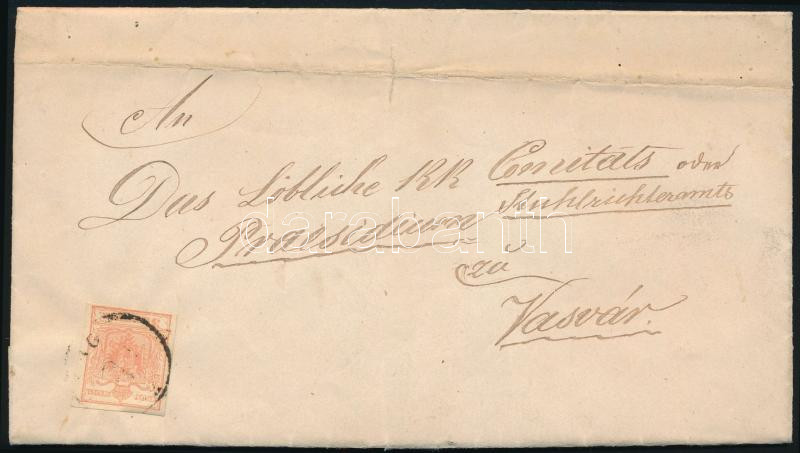 An
Das Löbliche KK Comitats oder
Stuhlrichteramts
Praesedium
zu
Vasvár.
darabanth